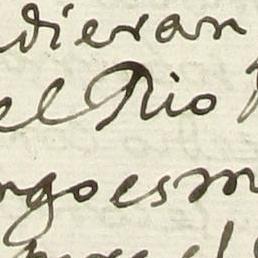 dieran
el Rio
rgo esm